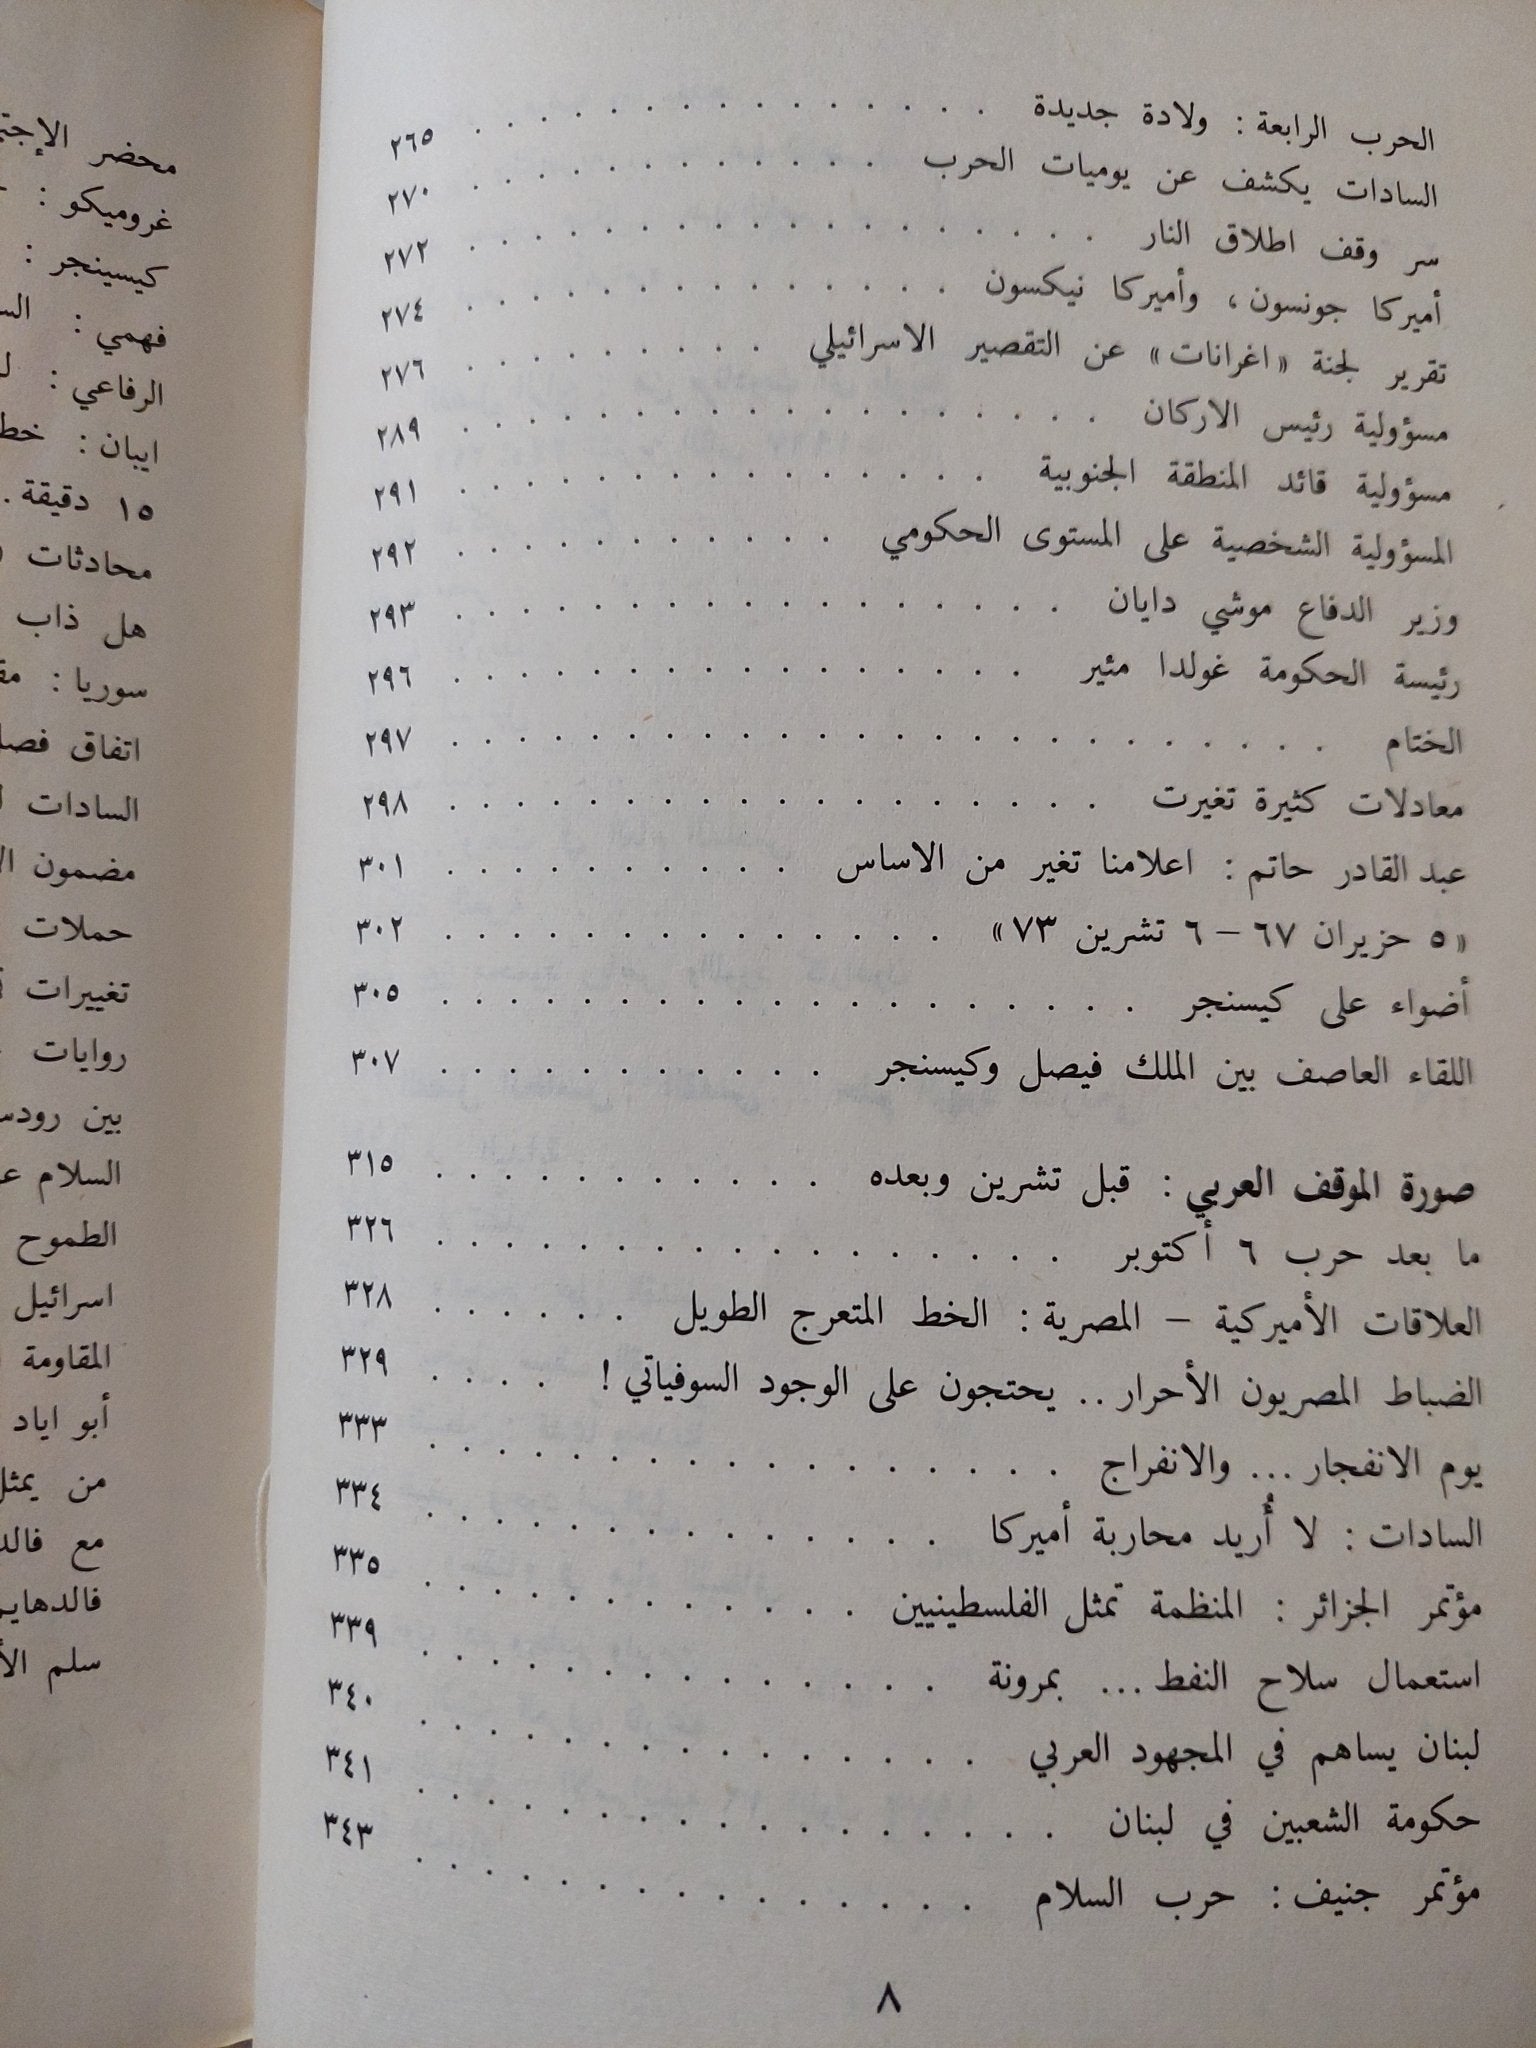 الحرب الرابعة : ولادة جديدة . . . . . . . . . . . . ٢٦٥
السادات يكشف عن يوميات الحرب . . . . . . . . . . . . ٢٧٠
سر وقف اطلاق النار . . . . . . . . . . . . . . . . ٢٧٢
أميركا جونسون ، وأميركا نيكسون . . . . . . . . . . . . ٢٧٤
تقرير لجنة « اغرانات » عن التقصير الاسرائيلي . . . . . . . . ٢٧٦
مسؤولية رئيس الاركان . . . . . . . . . . . . . . . . ٢٨٩
مسؤولية قائد المنطقة الجنوبية . . . . . . . . . . . . . ٢٩١
المسؤولية الشخصية على المستوى الحكومي . . . . . . . . . . ٢٩٢
وزير الدفاع موشي دايان . . . . . . . . . . . . . . . ٢٩٣
رئيسة الحكومة غولدا مئير . . . . . . . . . . . . . . . ٢٩٦
الختام . . . . . . . . . . . . . . . . . . . . . ٢٩٧
معادلات كثيرة تغيرت . . . . . . . . . . . . . . . . ٢٩٨
عبد القادر حاتم : اعلامنا تغير من الاساس . . . . . . . . . ٣٠١
« ٥ حزيران ٦٧ – ٦ تشرين ٧٣ » . . . . . . . . . . . . ٣٠٢
أضواء على كيسنجر . . . . . . . . . . . . . . . . . ٣٠٥
اللقاء العاصف بين الملك فيصل وكيسنجر . . . . . . . . . . ٣٠٧
صورة الموقف العربي : قبل تشرين وبعده . . . . . . . . . . ٣١٥
ما بعد حرب ٦ أكتوبر . . . . . . . . . . . . . . . . ٣٢٦
العلاقات الأميركية – المصرية : الخط المتعرج الطويل . . . . . . ٣٢٨
الضباط المصريون الأحرار .. يحتجون على الوجود السوفياتي ! . . . . ٣٢٩
يوم الانفجار ... والانفراج . . . . . . . . . . . . . . ٣٣٣
السادات : لا أُريد محاربة أميركا . . . . . . . . . . . . ٣٣٤
مؤتمر الجزائر : المنظمة تمثل الفلسطينيين . . . . . . . . . . ٣٣٥
استعمال سلاح النفط ... بمرونة . . . . . . . . . . . . ٣٣٩
لبنان يساهم في المجهود العربي . . . . . . . . . . . . . ٣٤٠
حكومة الشعبين في لبنان . . . . . . . . . . . . . . . ٣٤١
مؤتمر جنيف : حرب السلام . . . . . . . . . . . . . . ٣٤٣
٨
محضر
غروميكو :
كيسينجر :
فهمي :
الرفاعي :
ايبان :
١٥ دقيقة .
محادثات
هل ذاب
سوريا :
اتفاق
السادات
مضمون
حملات
تغييرات
روايات
بين
السلام
الطموح
اسرائيل
المقاومة
أبو اياد
من
مع
سلم